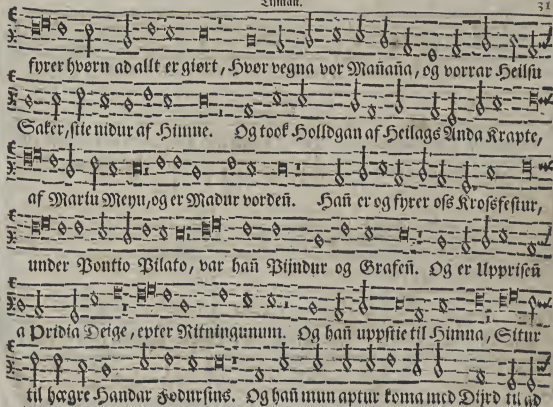 31
fyrer hvørn ad allt er giørt, Hvør vegna vor Mañaña, og vorrar Heilsu
Saker, stie nidur af Himne. Og took Holldgan af Heilags Anda Krapte,
af Martu Meyu, og er Madur vordeñ. Hañ er og fyrer oss Krossfestur,
under Pontio Pilato, var hañ Pijndur og Grafeñ. Og er Uppriseñ
a Þridia Deige, epter Ritningunum. Og hañ uppstie til Himna, Situr
til hægre Handar Fødursins. Og hañ mun aptur koma med Dijrd til ad